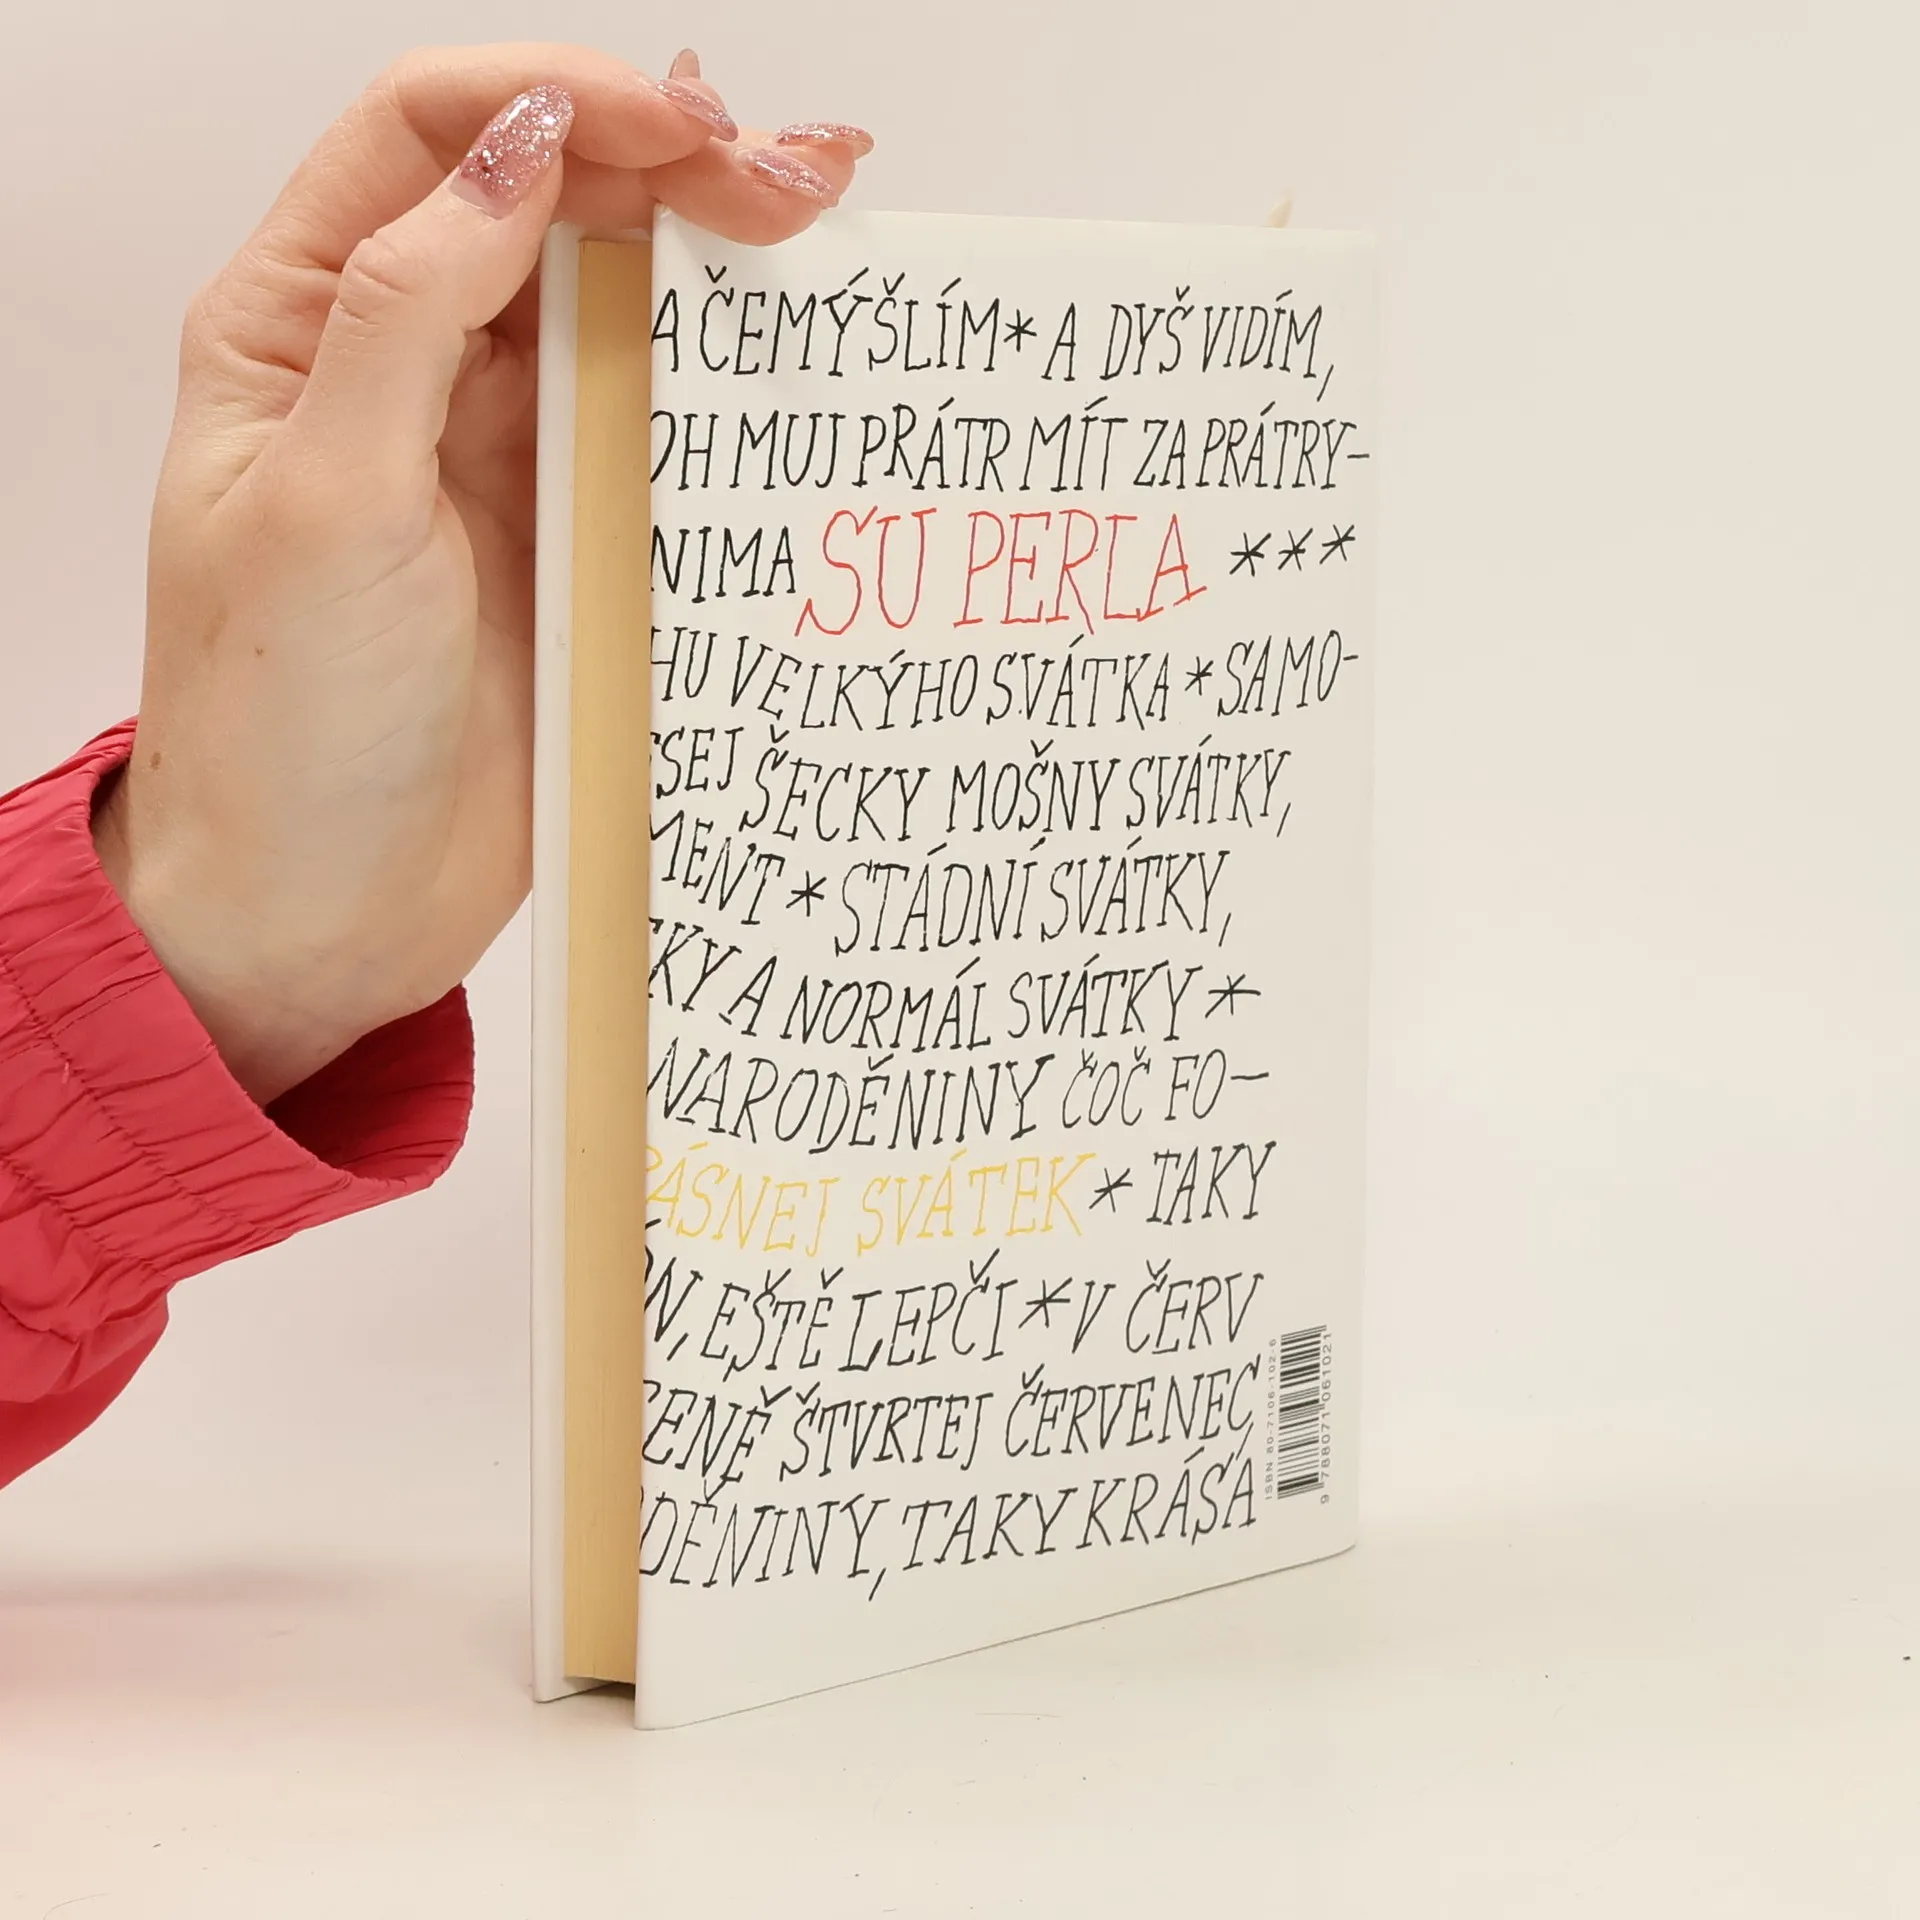 A ČEMÝŠLÍM * A DYŠ VIDÍM,
OH MUJ PRÁTR MÍT ZA PRÁTRY-
NIMA SU PERLA ***
HU VELKÝHO SVÁTKA * SAMO-
SEJ ŠECKY MOŠNY SVÁTKY,
MENT * STÁDNÍ SVÁTKY,
KY A NORMÁL SVÁTKY *
NARODĚNINY ČOČ FO-
RÁSNEJ SVÁTEK * TAKY
N, EŠTĚ LEPČI * V ČERV
CENĚ ŠTVRTEJ ČERVENEC,
DĚNINY, TAKY KRÁSA
ISBN 80-7106-102-6
9 788071 061021